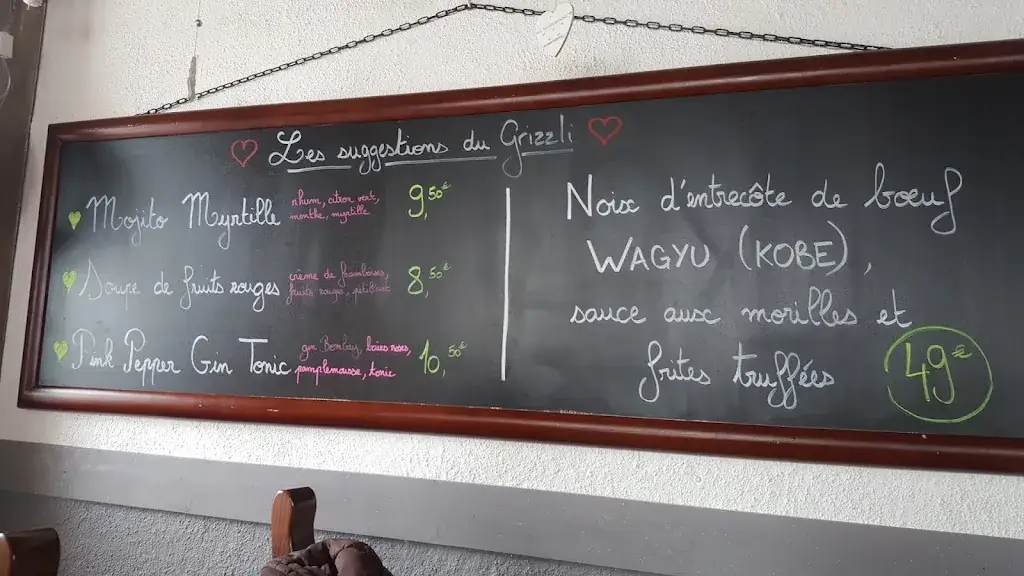 Les suggestions du Grizzli
Mojito Myrtille
rhum, citron vert,
menthe, myrtille
9,50€
Soupe de fruits rouges
crème de framboises,
fruits rouges, pétillant
8,50€
Pink Pepper Gin Tonic
gin Bombay, baies roses,
pamplemousse, tonic
10,50€
Noix d'entrecôte de bœuf
WAGYU (KOBE),
sauce aux morilles et
frites truffées
49€